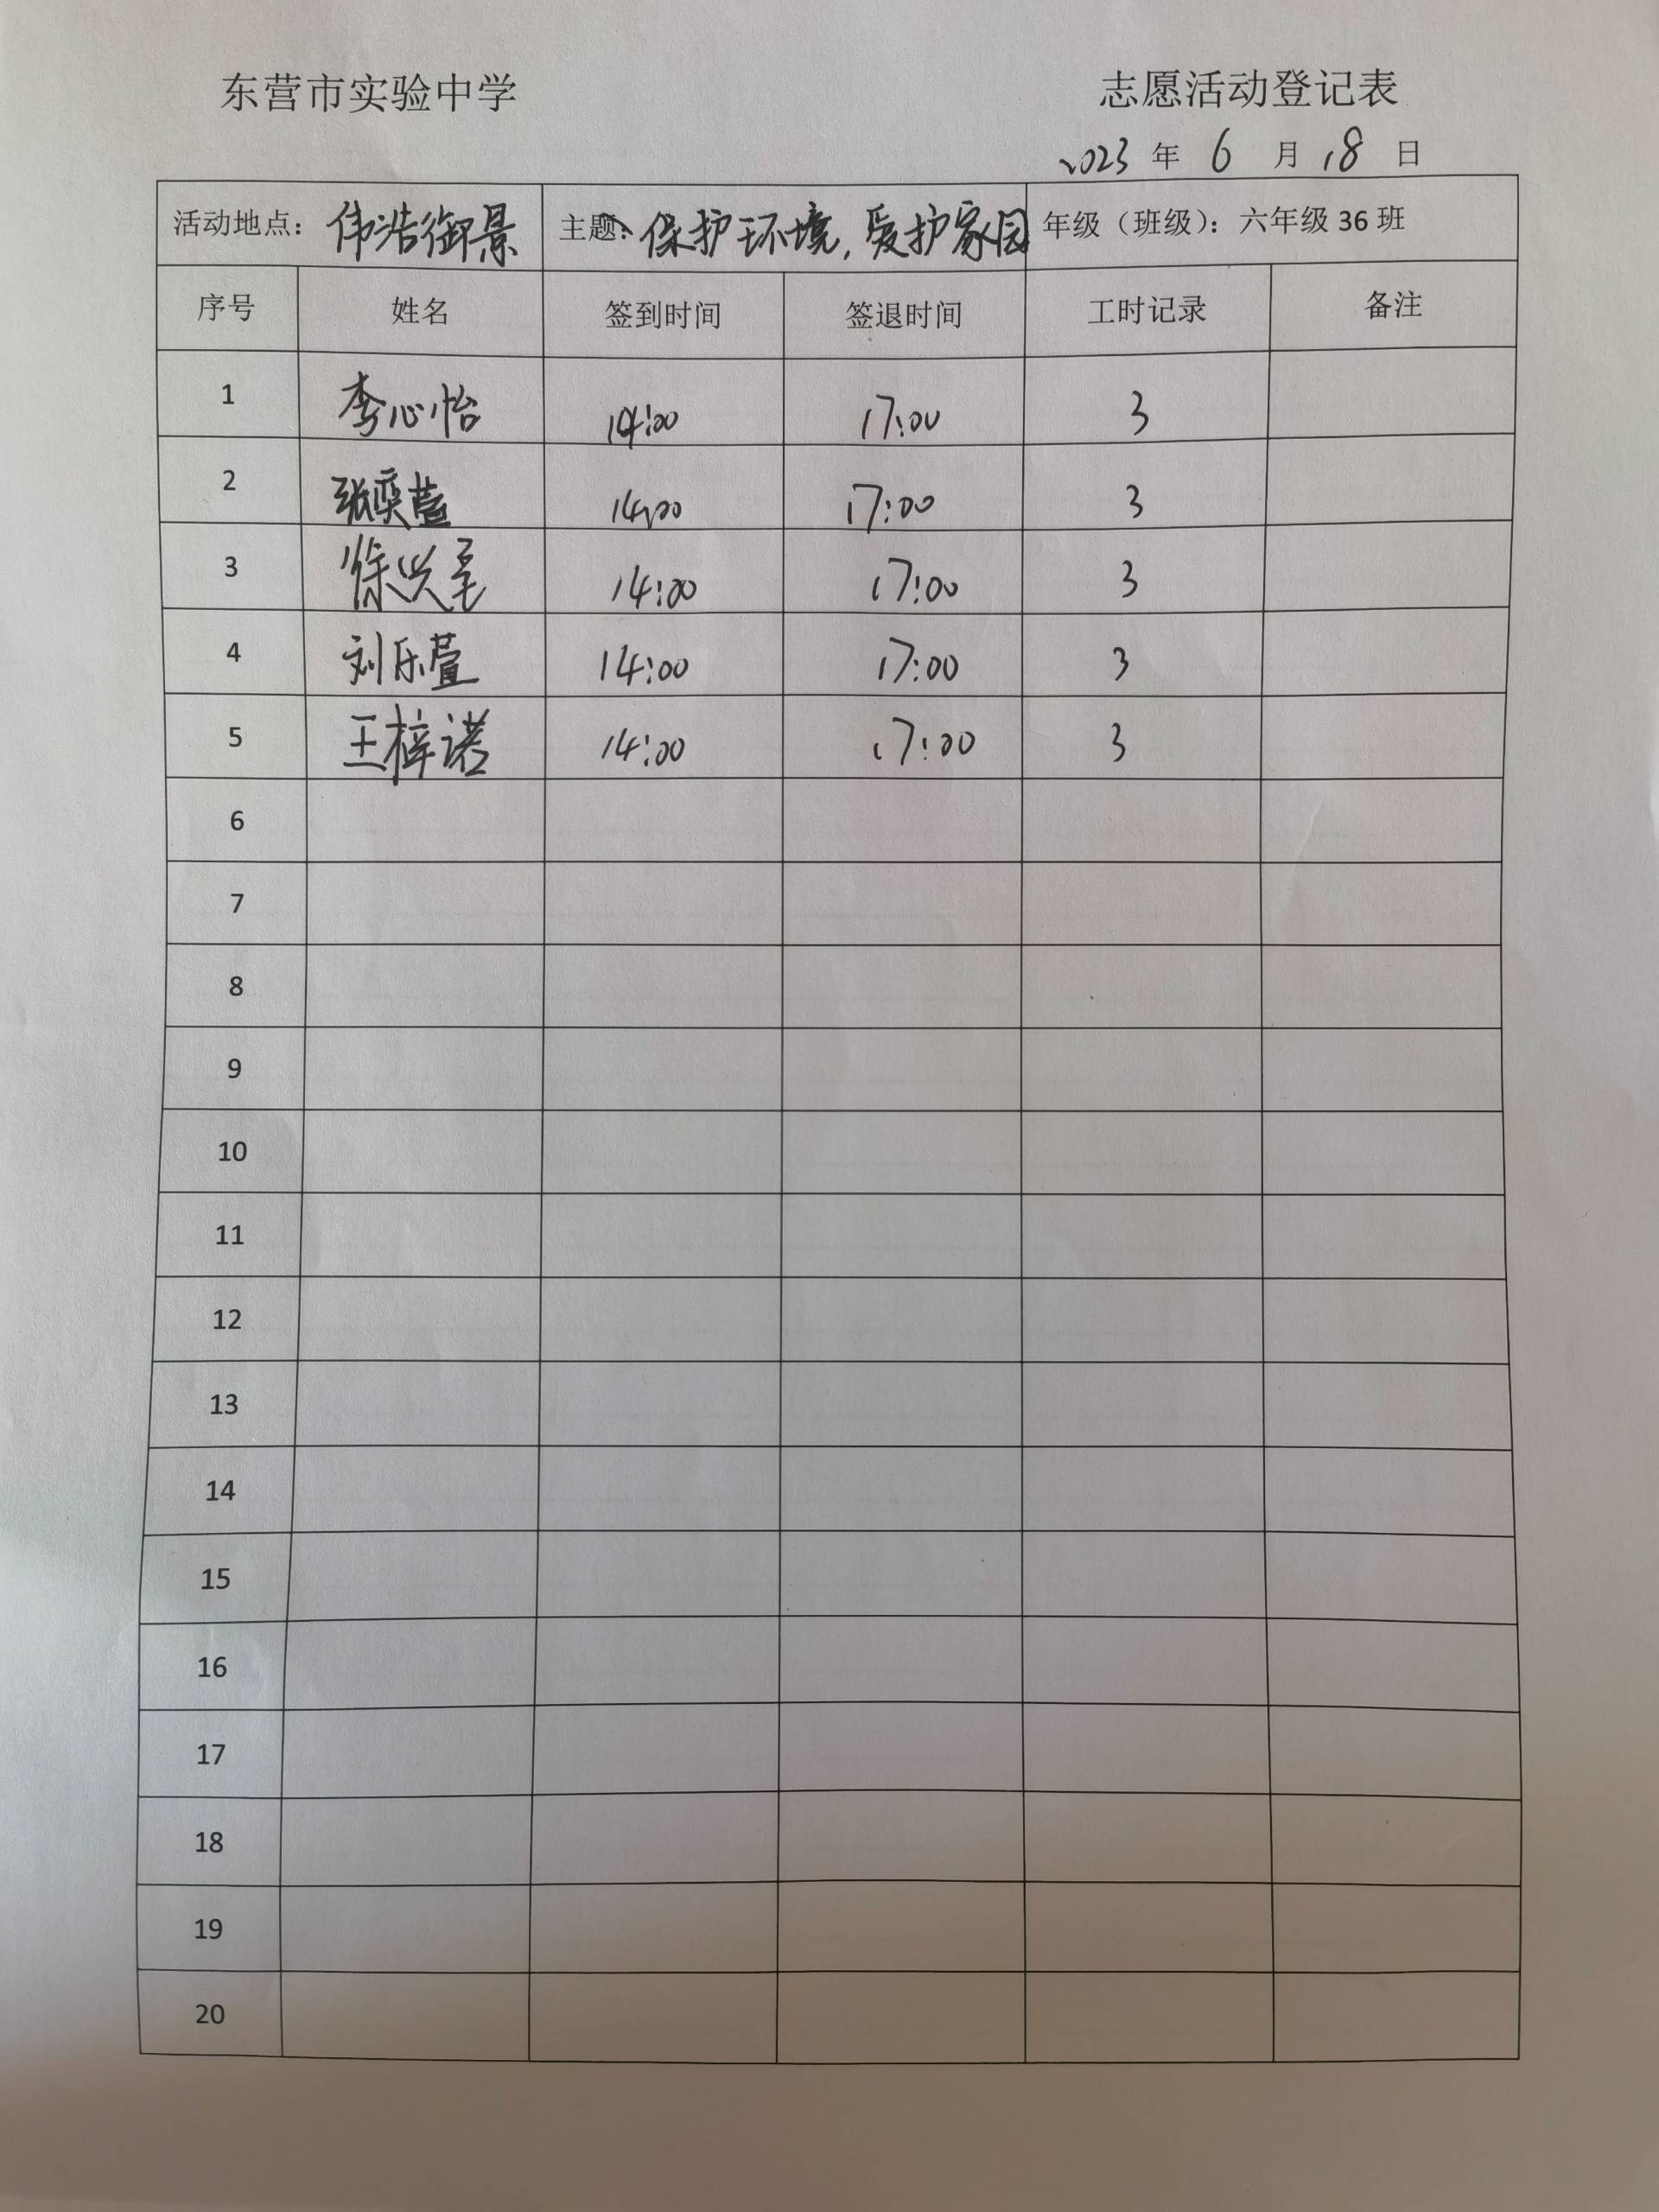 东营市实验中学 志愿活动登记表
2023 年 6 月 18 日
活动地点：伟浩御景 主题：保护环境，爱护家园 年级（班级）：六年级 36 班
序号 姓名 签到时间 签退时间 工时记录 备注
1 李心怡 14:00 17:00 3
2 张奕萱 14:00 17:00 3
3 徐 14:00 17:00 3
4 刘乐萱 14:00 17:00 3
5 王梓诺 14:00 17:00 3
6
7
8
9
10
11
12
13
14
15
16
17
18
19
20